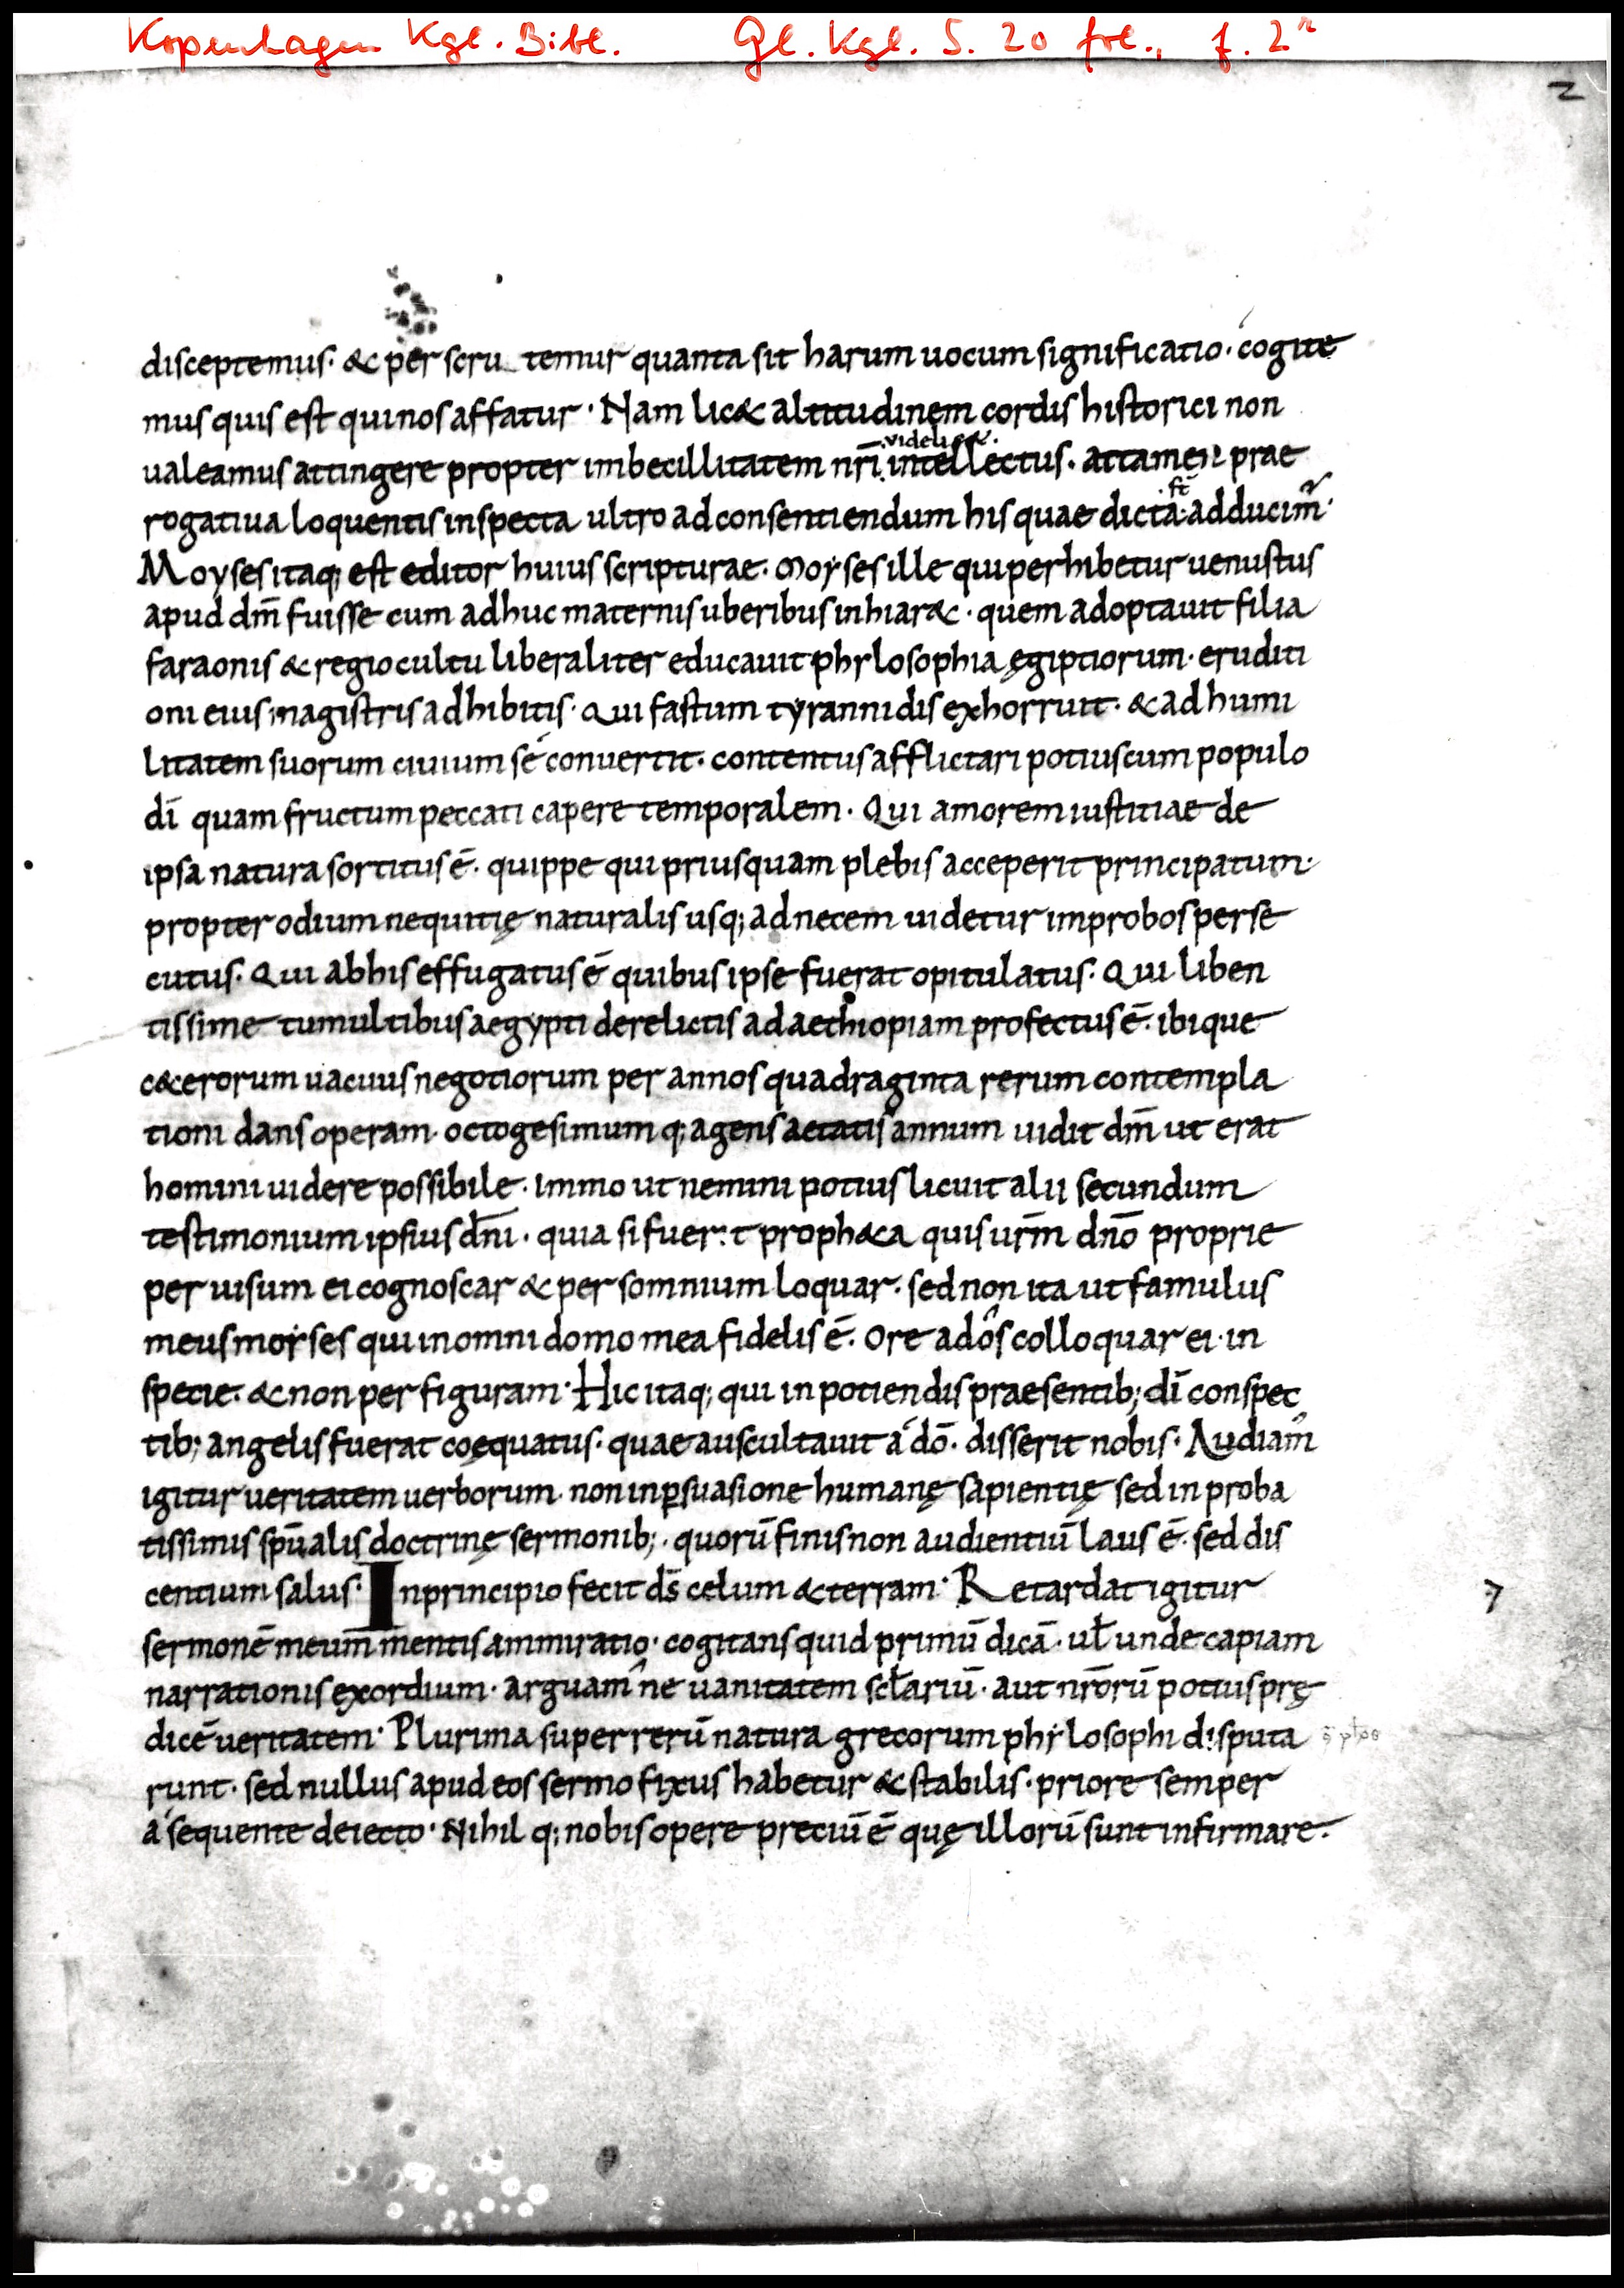 Kopenhagen Kgl. Bibl. Gl. Kgl. S. 20 fol., f. 2r
2
disceptemus· & per scru temur quanta sit harum uocum significatio· cogite
mus quis est qui nos affatur· Nam lic& altitudinem cordis historici non
·videlic&·
ualeamus attingere propter imbecillitatem nr̄i intellectus· attamen prae
·st̄·
rogatiua loquentis inspecta ultro ad consentiendum his quae dicta· adducim̄·
Moyses itaq; est editor huius scripturae· Moyses ille qui perhibetur uenustus
apud dm̄ fuisse cum adhuc maternis uberibus inhiar&· quem adoptauit filia
faraonis & regio cultu liberaliter educauit phylosophia ęgiptiorum· eruditi
oni eius magistris adhibitis· Qui fastum tyrannidis exhorruit· & ad humi
litatem suorum ciuium sé conuertit· contentus afflictari potius cum populo
dī quam fructum peccati capere temporalem· Qui amorem iustitiae de
ipsa natura sortitus ē· quippe qui priusquam plebis acceperit principatum·
propter odium nequitię naturalis usq; ad necem uidetur improbos perse
cutus· Qui abhis effugatus ē quibus ipse fuerat opitulatus· Qui liben
tissime tumultibus aegypti derelictis ad aethiopiam profectus ē· ibique
c&erorum uacuus negotiorum per annos quadraginta rerum contempla
tioni dans operam· octogesimum q; agens aetatis annum uidit dm̄ ut erat
homini uidere possibile· Immo ut nemini potius licuit alii secundum
testimonium ipsius dn̄i· quia si fuerit proph&a quis ur̄m dn̄o proprie
per uisum ei cognoscar & per somnium loquar· sed non ita ut famulus
meus moyses qui in omni domo mea fidelis ē· Ore ad os colloquar ei· in
specie· & non per figuram· Hic itaq; qui in potiendis praesentib; dī conspec
tib; angelis fuerat coęquatus· quae auscultauit á dō· disserit nobis· Audiam̄
igitur ueritatem uerborum· non in ꝑsuasione humanę sapientię sed in proba
tissimis spū̄alis doctrinę sermonib;· quorū finis non audientiū laus ē· sed dis
centium salus· In principio fecit ds̄ celum & terram· Retardat igitur
7
sermonē meum mentis ammiratio· cogitans quid primū dicā· ul̄ unde capiam
narrationis exordium· arguam ne uanitatem scl̄ariū· aut nr̄orū potius prę
dicē ueritatem· Plurima super rerū natura grecorum phylosophi disputa
runt· sed nullus apud eos sermo fixus habetur & stabilis· priore semper
á sequente deiecto· Nihil q; nobis opere preciū ē quę illorū sunt infirmare·